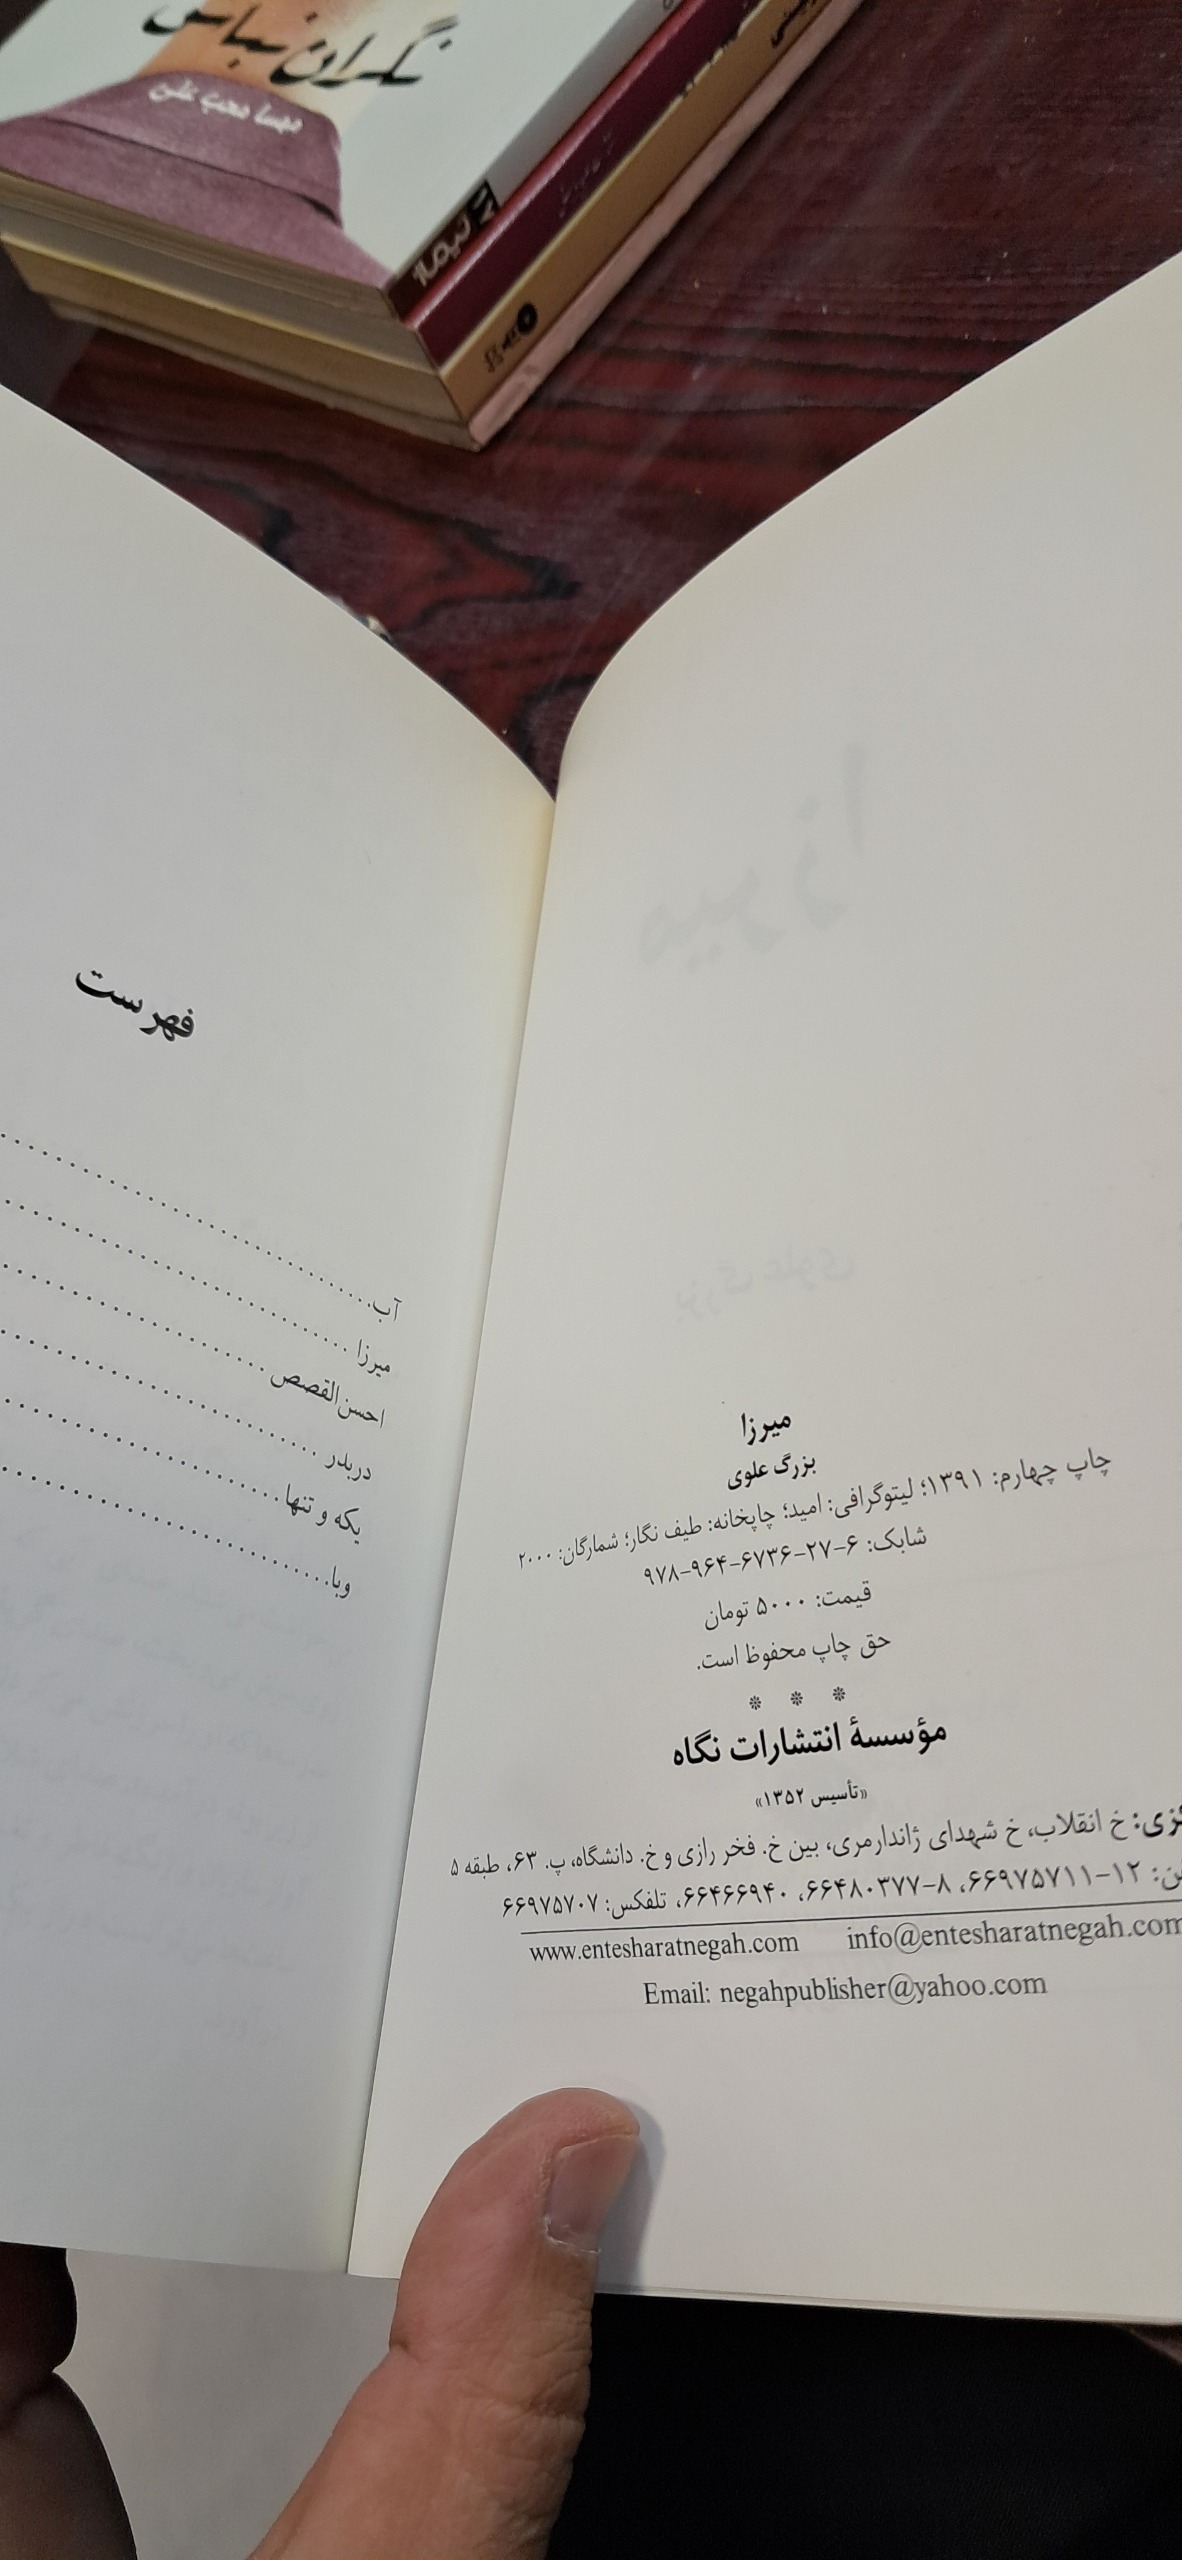 نگران نباش
مهسا محب علی
میرزا
بزرگ علوی
چاپ چهارم: ۱۳۹۱؛ لیتوگرافی: امید؛ چاپخانه: طیف نگار؛ شمارگان: ۲۰۰۰
شابک: ۶-۲۷-۶۷۳۶-۹۶۴-۹۷۸
قیمت: ۵۰۰۰ تومان
حق چاپ محفوظ است.
* * *
مؤسسهٔ انتشارات نگاه
«تأسیس ۱۳۵۲»
خ انقلاب، خ شهدای ژاندارمری، بین خ. فخر رازی و خ. دانشگاه، پ. ۶۳، طبقه ۵
۱۲-۶۶۹۷۵۷۱۱، ۸-۶۶۴۸۰۳۷۷، ۶۶۴۶۶۹۴۰، تلفکس: ۶۶۹۷۵۷۰۷
www.entesharatnegah.com info@entesharatnegah.com
Email: negahpublisher@yahoo.com
فهرست
آب
میرزا
احسن‌القصص
دربدر
یکه و تنها
وبا